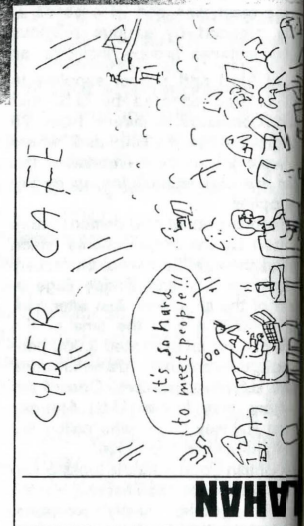 CYBER CAFE
it's so hard
to meet people!!
LAHAN